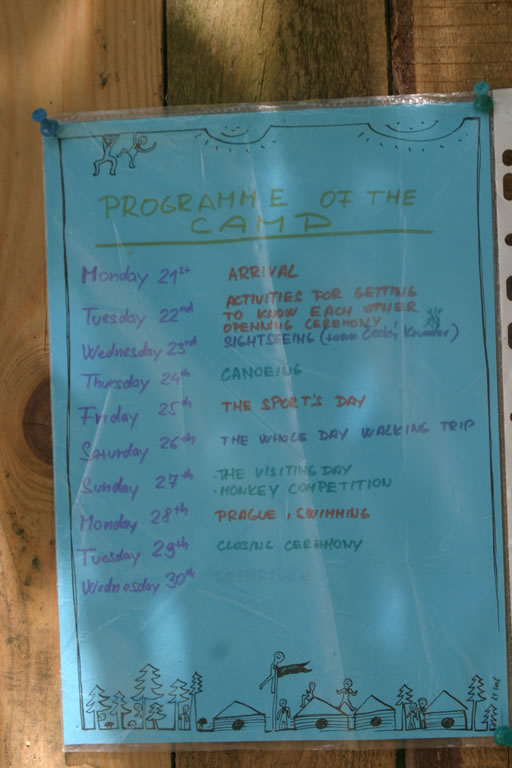 PROGRAMME OF THE
CAMP
Monday 21st ARRIVAL
Tuesday 22nd ACTIVITIES FOR GETTING
TO KNOW EACH OTHER
OPENNING CEREMONY
Wednesday 23rd SIGHTSEEING (town Český Krumlov)
Thursday 24th CANOEING
Friday 25th THE SPORT'S DAY
Saturday 26th THE WHOLE DAY WALKING TRIP
Sunday 27th · THE VISITING DAY
· MONKEY COMPETITION
Monday 28th PRAGUE, SWIMMING
Tuesday 29th CLOSING CEREMONY
Wednesday 30th DEPARTURE